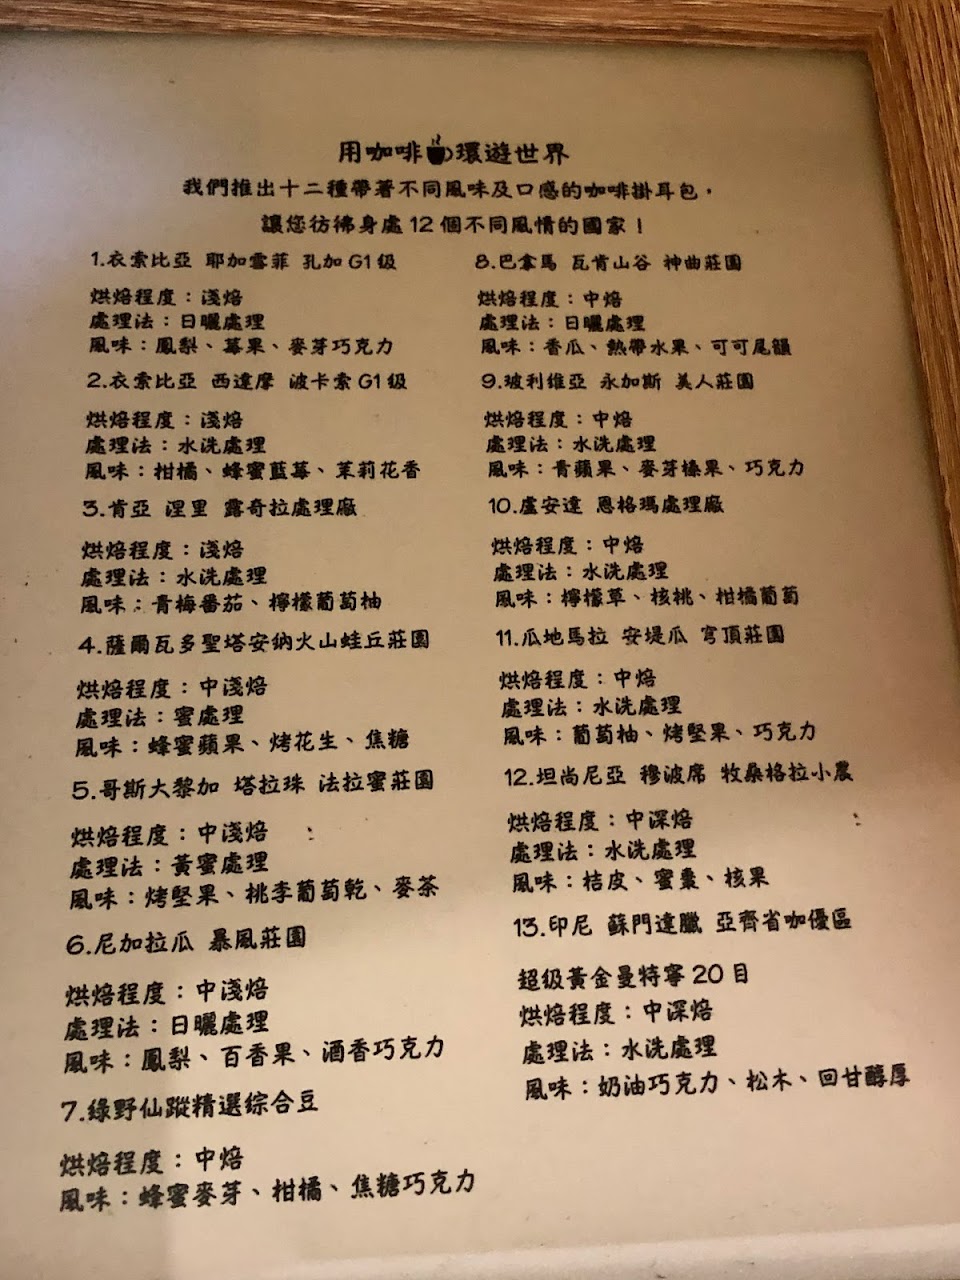 用咖啡環遊世界
我們推出十二種帶著不同風味及口感的咖啡掛耳包，
讓您彷彿身處12個不同風情的國家！
1.衣索比亞 耶加雪菲 孔加G1級
烘焙程度：淺焙
處理法：日曬處理
風味：鳳梨、莓果、麥芽巧克力
2.衣索比亞 西達摩 波卡索G1級
烘焙程度：淺焙
處理法：水洗處理
風味：柑橘、蜂蜜藍莓、茉莉花香
3.肯亞 涅里 露奇拉處理廠
烘焙程度：淺焙
處理法：水洗處理
風味：青梅番茄、檸檬葡萄柚
4.薩爾瓦多聖塔安納火山蛙丘莊園
烘焙程度：中淺焙
處理法：蜜處理
風味：蜂蜜蘋果、烤花生、焦糖
5.哥斯大黎加 塔拉珠 法拉蜜莊園
烘焙程度：中淺焙
處理法：黃蜜處理
風味：烤堅果、桃李葡萄乾、麥茶
6.尼加拉瓜 暴風莊園
烘焙程度：中淺焙
處理法：日曬處理
風味：鳳梨、百香果、酒香巧克力
7.綠野仙蹤精選綜合豆
烘焙程度：中焙
風味：蜂蜜麥芽、柑橘、焦糖巧克力
8.巴拿馬 瓦肯山谷 神曲莊園
烘焙程度：中焙
處理法：日曬處理
風味：香瓜、熱帶水果、可可尾韻
9.玻利維亞 永加斯 美人莊園
烘焙程度：中焙
處理法：水洗處理
風味：青蘋果、麥芽榛果、巧克力
10.盧安達 恩格瑪處理廠
烘焙程度：中焙
處理法：水洗處理
風味：檸檬草、核桃、柑橘葡萄
11.瓜地馬拉 安堤瓜 穹頂莊園
烘焙程度：中焙
處理法：水洗處理
風味：葡萄柚、烤堅果、巧克力
12.坦尚尼亞 穆波席 牧桑格拉小農
烘焙程度：中深焙
處理法：水洗處理
風味：桔皮、蜜棗、核果
13.印尼 蘇門達臘 亞齊省咖優區
超級黃金曼特寧20目
烘焙程度：中深焙
處理法：水洗處理
風味：奶油巧克力、松木、回甘醇厚